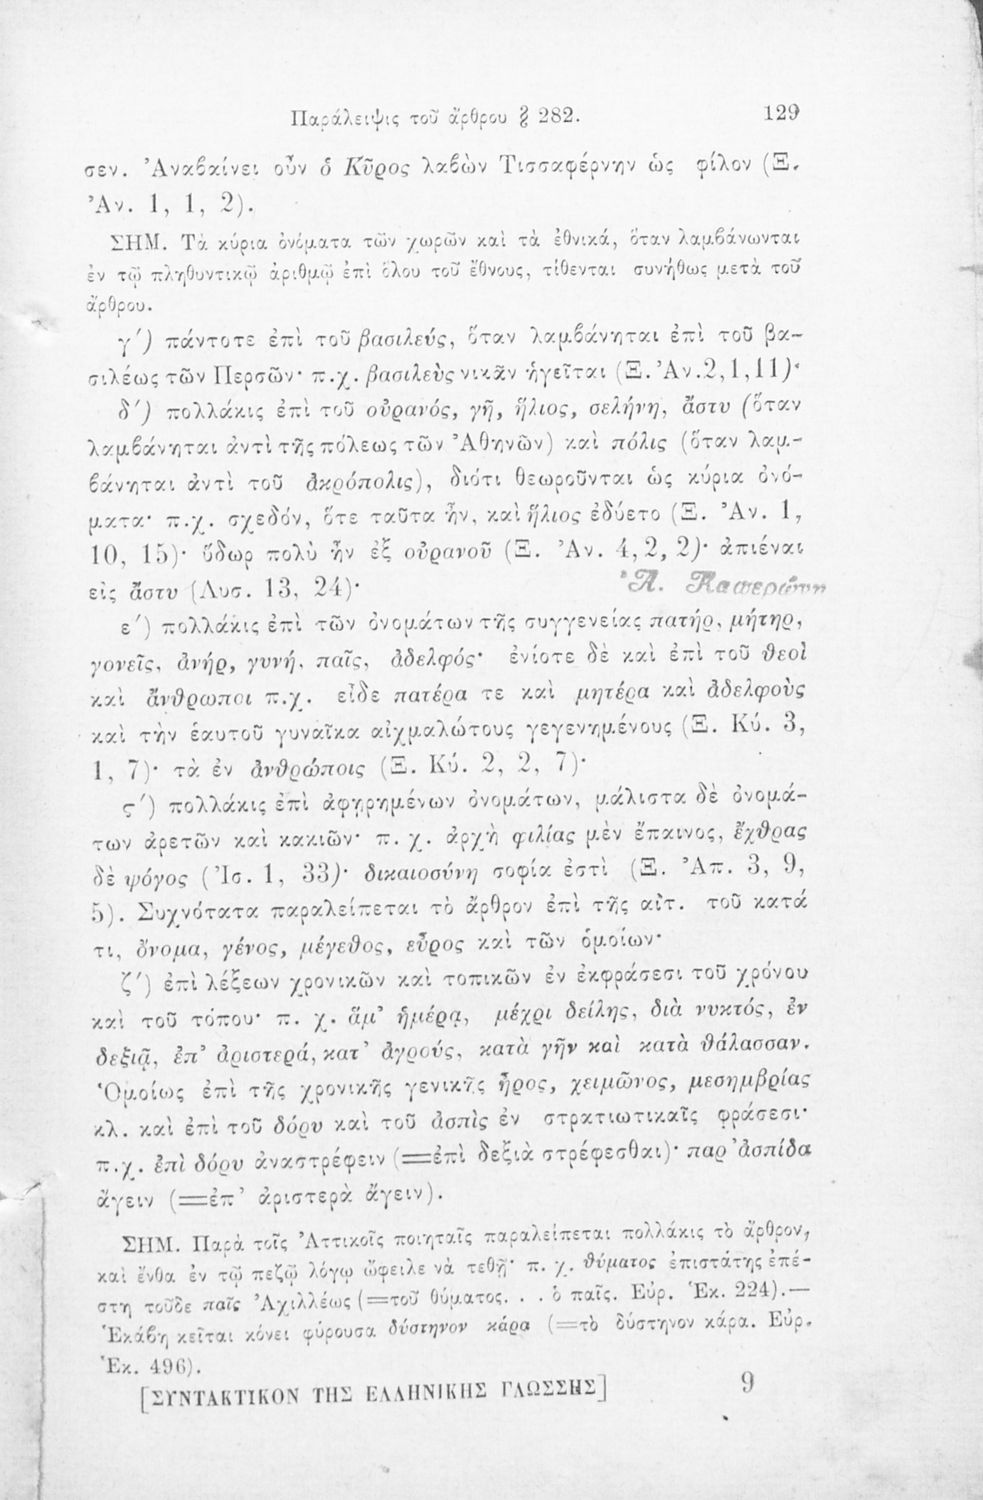 Παράλειψις τοῦ ἄρθρου § 282. 129
σεν. Ἀναβαίνει οὖν ὁ Κῦρος λαβὼν Τισσαφέρνην ὡς φίλον (Ξ.
Ἀν. 1, 1, 2).
ΣΗΜ. Τὰ κύρια ὀνόματα τῶν χωρῶν καὶ τὰ ἐθνικά, ὅταν λαμβάνωνται
ἐν τῷ πληθυντικῷ ἀριθμῷ ἐπὶ ὅλου τοῦ ἔθνους, τίθενται συνήθως μετὰ τοῦ
ἄρθρου.
γ΄) πάντοτε ἐπὶ τοῦ βασιλεύς, ὅταν λαμβάνηται ἐπὶ τοῦ βα-
σιλέως τῶν Περσῶν· π.χ. βασιλεὺς νικᾶν ἡγεῖται (Ξ. Ἀν. 2,1,11)·
δ΄) πολλάκις ἐπὶ τοῦ οὐρανός, γῆ, ἥλιος, σελήνη, ἄστυ (ὅταν
λαμβάνηται ἀντὶ τῆς πόλεως τῶν Ἀθηνῶν) καὶ πόλις (ὅταν λαμ-
βάνηται ἀντὶ τοῦ ἀκρόπολις), διότι θεωροῦνται ὡς κύρια ὀνό-
ματα· π.χ. σχεδόν, ὅτε ταῦτα ἦν, καὶ ἥλιος ἐδύετο (Ξ. Ἀν. 1,
10, 15)· ὕδωρ πολὺ ἦν ἐξ οὐρανοῦ (Ξ. Ἀν. 4, 2, 2)· ἀπιέναι
εἰς ἄστυ (Λυσ. 13, 24)· Ἀ. Παπερώνη
ε΄) πολλάκις ἐπὶ τῶν ὀνομάτων τῆς συγγενείας πατήρ, μήτηρ,
γονεῖς, ἀνήρ, γυνή, παῖς, ἀδελφός· ἐνίοτε δὲ καὶ ἐπὶ τοῦ θεοὶ
καὶ ἄνθρωποι π.χ. εἶδε πατέρα τε καὶ μητέρα καὶ ἀδελφοὺς
καὶ τὴν ἑαυτοῦ γυναῖκα αἰχμαλώτους γεγενημένους (Ξ. Κύ. 3,
1, 7)· τὰ ἐν ἀνθρώποις (Ξ. Κύ. 2, 2, 7)·
ς΄) πολλάκις ἐπὶ ἀφῃρημένων ὀνομάτων, μάλιστα δὲ ὀνομά-
των ἀρετῶν καὶ κακιῶν· π. χ. ἀρχὴ φιλίας μὲν ἔπαινος, ἔχθρας
δὲ ψόγος (Ἰσ. 1, 33)· δικαιοσύνη σοφία ἐστὶ (Ξ. Ἀπ. 3, 9,
5). Συχνότατα παραλείπεται τὸ ἄρθρον ἐπὶ τῆς αἰτ. τοῦ κατά
τι, ὄνομα, γένος, μέγεθος, εὖρος καὶ τῶν ὁμοίων·
ζ΄) ἐπὶ λέξεων χρονικῶν καὶ τοπικῶν ἐν ἐκφράσεσι τοῦ χρόνου
καὶ τοῦ τόπου· π. χ. ἅμ᾽ ἡμέρᾳ, μέχρι δείλης, διὰ νυκτός, ἐν
δεξιᾷ, ἐπ᾽ ἀριστερά, κατ᾽ ἀγρούς, κατὰ γῆν καὶ κατὰ θάλασσαν.
Ὁμοίως ἐπὶ τῆς χρονικῆς γενικῆς ἦρος, χειμῶνος, μεσημβρίας
κλ. καὶ ἐπὶ τοῦ δόρυ καὶ τοῦ ἀσπὶς ἐν στρατιωτικαῖς φράσεσι·
π.χ. ἐπὶ δόρυ ἀναστρέφειν (=ἐπὶ δεξιὰ στρέφεσθαι)· παρ᾽ ἀσπίδα
ἄγειν (=ἐπ᾽ ἀριστερὰ ἄγειν).
ΣΗΜ. Παρὰ τοῖς Ἀττικοῖς ποιηταῖς παραλείπεται πολλάκις τὸ ἄρθρον,
καὶ ἔνθα ἐν τῷ πεζῷ λόγῳ ὤφειλε νὰ τεθῇ· π. χ. θύματος ἐπιστάτης ἐπέ-
στη τοῦδε παῖς Ἀχιλλέως (=τοῦ θύματος. . . ὁ παῖς. Εὐρ. Ἑκ. 224).—
Ἑκάβη κεῖται κόνει φύρουσα δύστηνον κάρα (=τὸ δύστηνον κάρα. Εὐρ.
Ἑκ. 496).
[ΣΥΝΤΑΚΤΙΚΟΝ ΤΗΣ ΕΛΛΗΝΙΚΗΣ ΓΛΩΣΣΗΣ] 9